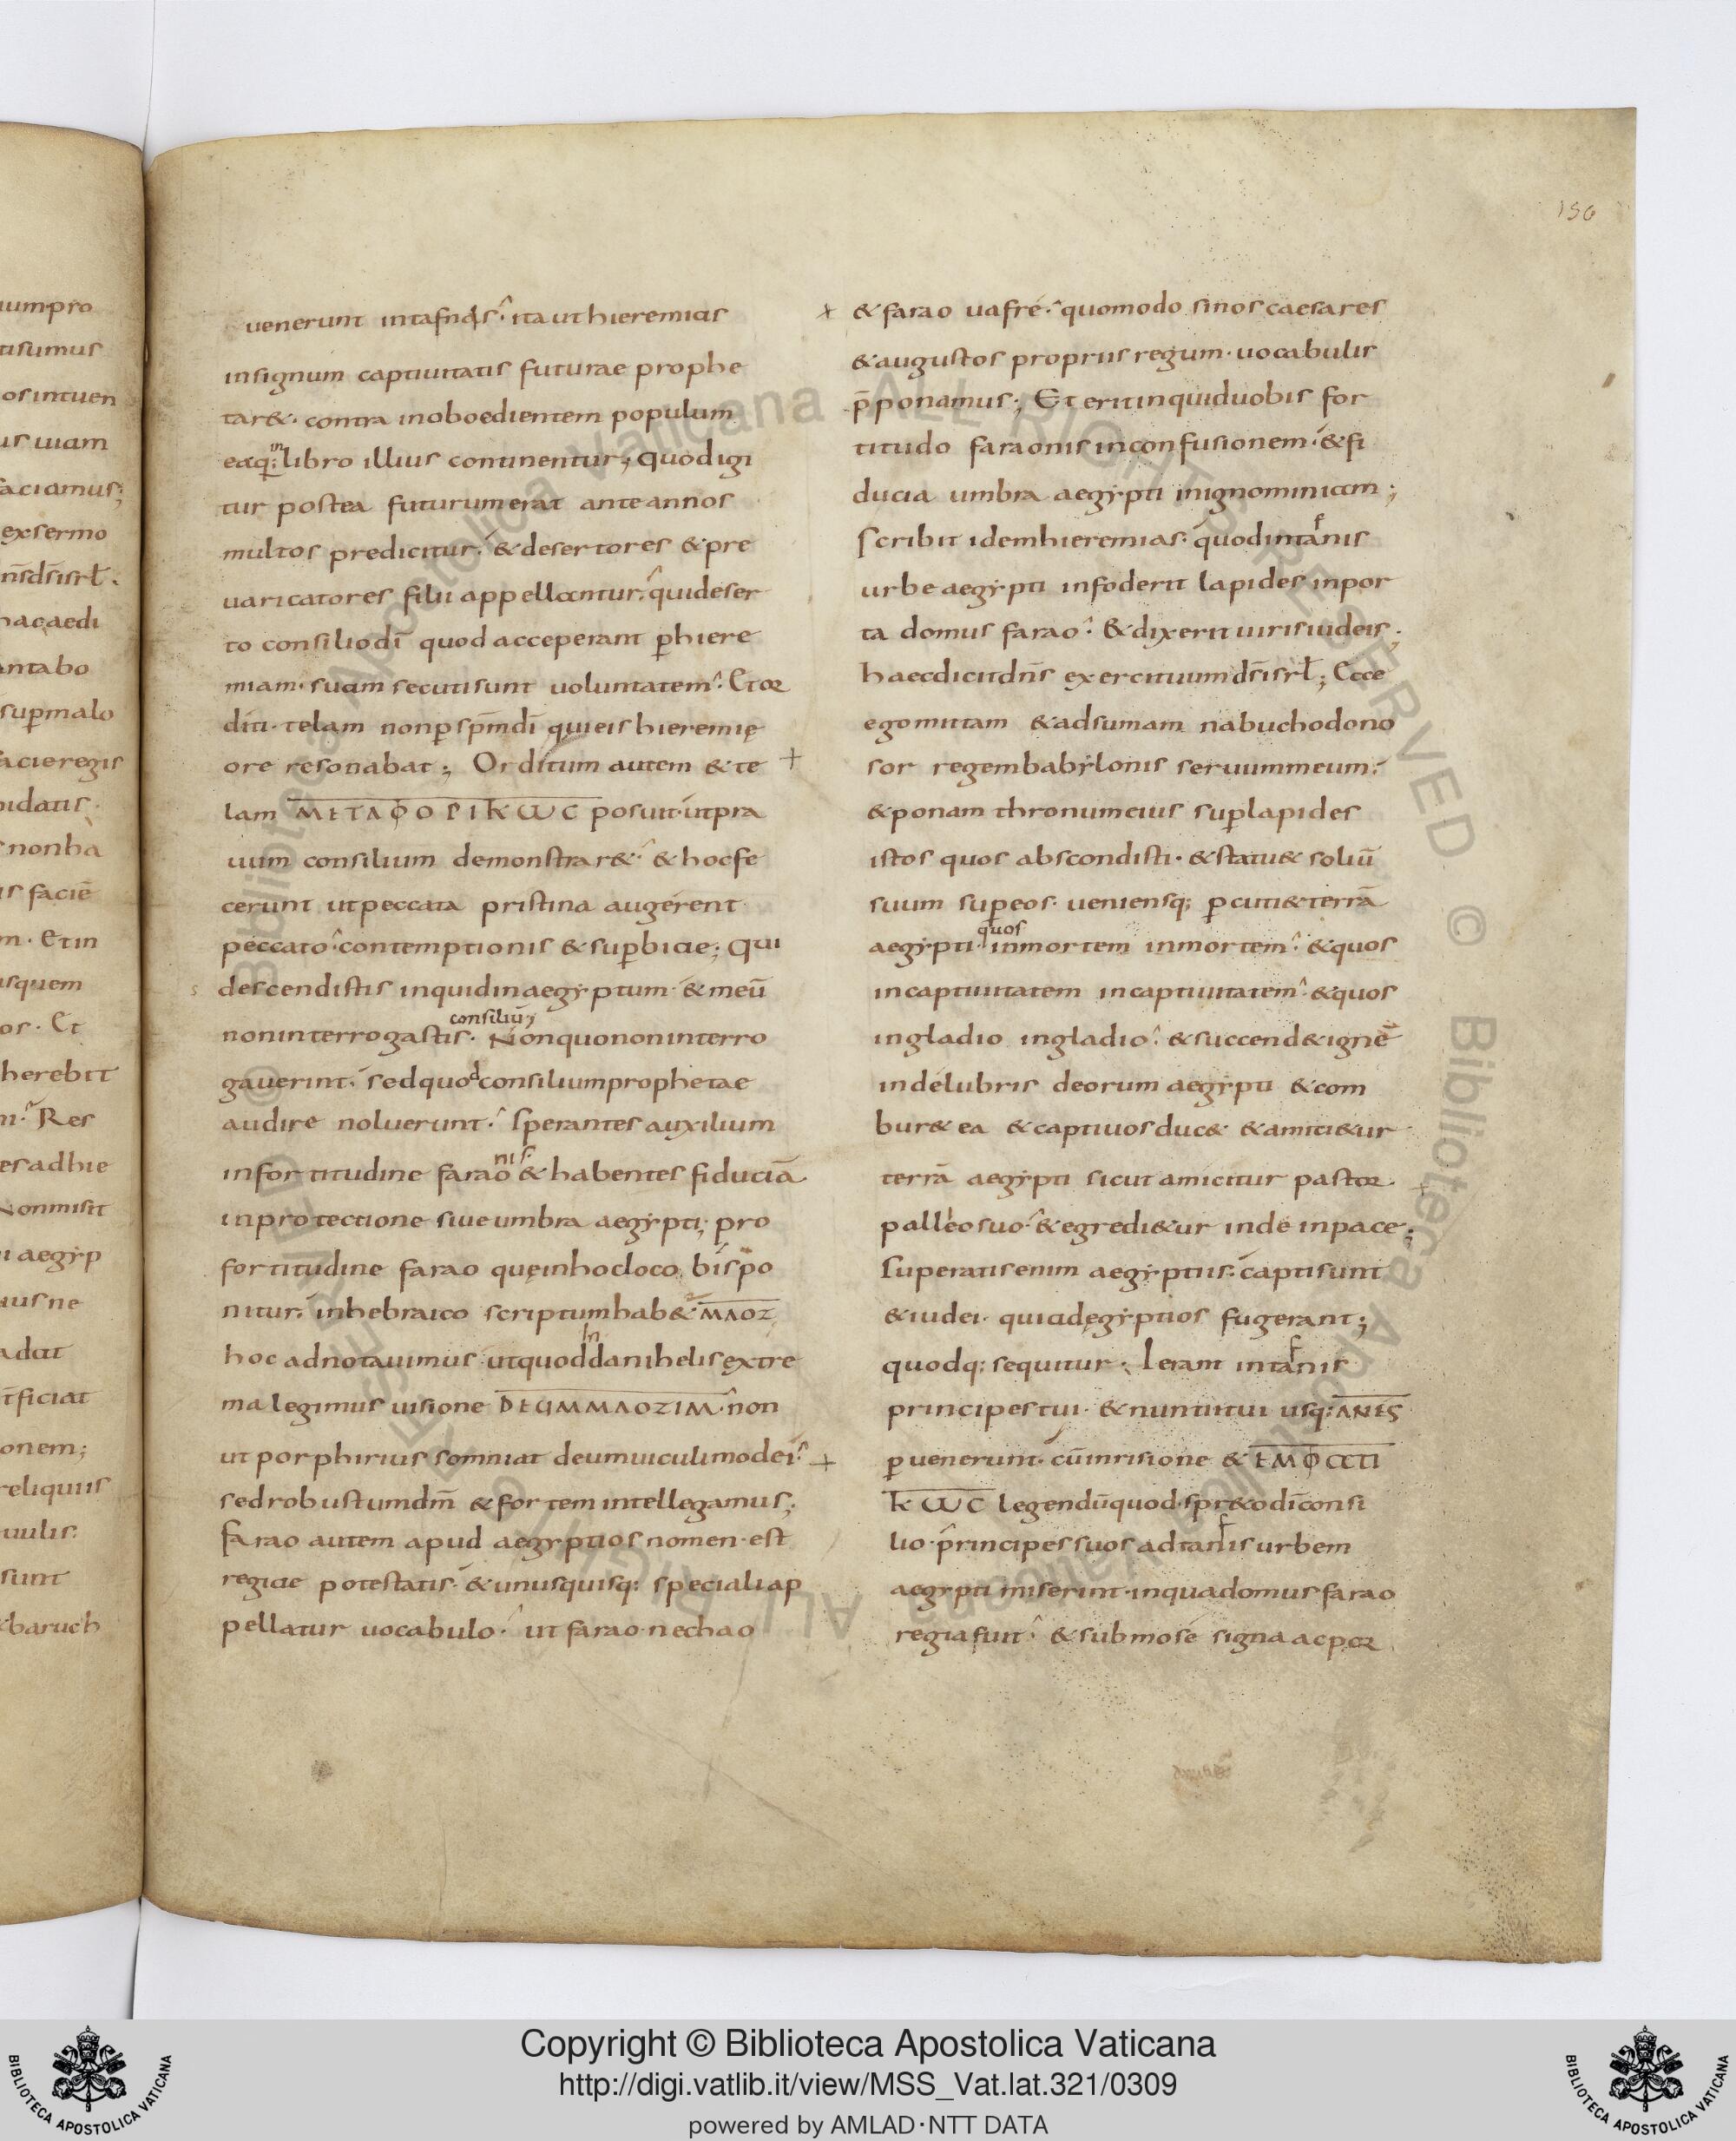 156
uenerunt intafnas ita ut hieremias
insignum captiuitatis futurae prophe
tar&· contra inoboedientem populum
eaq; in libro illius continentur; quodigi
tur postea futurum erat ante annos
multos predicitur· & desertores & pre
uaricatores filii appellantur· quideser
to consilio dī quod acceperant p hiere
miam· suam secutisunt uoluntatem· Etor
diti· telam non p spm dī qui eis hieremię
ore resonabat; Orditum autem & te
lam ΜΕΤΑΦΟΡΙΚωC posuit· ut pra
uum consilium demonstrar&· & hocfe
cerunt ut peccata pristina augerent
peccato· contemptionis & supbiae; qui
descendistis inquid in aegyptum· & meū
consiliū;
noninterrogastis· Non quo non interro
gauerint· sed quod consilium prophetae
audire noluerunt· sperantes auxilium
infortitudine faraonis & habentes fiduciā
inprotectione siue umbra aegypti; pro
fortitudine farao quęinhocloco bis po
nitur· inhebraico scriptum hab& ΜΑΟΖ
hoc adnotauimus utquod in danihelis extre
ma legimus uisione DEUMMAOZIM· non
ut porphirius somniat deum uiculi modei·
sed robustum dm̄ & fortem intellegamus;
farao autem apud aegyptios nomen est
regiae potestatis· & unusquisq; speciali ap
pellatur uocabulo· ut farao nechao
& farao uafré· quomodo si nos caesares
& augustos propriis regum· uocabulis
p̄ponamus; Et erit inquid uobis for
titudo faraonis in confusionem· & fi
ducia umbra aegypti in ignominiam;
scribit idem hieremias· quod intafnis
urbe aegypti infoderit lapides inpor
ta domus farao· & dixerit uiris iudeis;
haec dicit dn̄s exercituum ds̄ isrl; Ecce
ego mittam & adsumam nabuchodono
sor regem babylonis seruum meum·
& ponam thronum eius sup lapides
istos quos abscondisti· & statu& soliū
suum sup eos· ueniensq; pcuti& terrā
quos
aegypti· inmortem inmortem· & quos
incaptiuitatem incaptiuitatem· & quos
ingladio ingladio· & succend& ignē
in delubris deorum aegypti & com
bur& ea & captiuos duc& & amici&ur
terrā aegypti sicut amicitur pastor
palleo suo· & egredi&ur inde inpace;
Superatis enim aegyptiis· captisunt
& iudei· qui ad ęgyptios fugerant;
quodq; sequitur· Ierant intafnis
principes tui· & nuntii tui usq; ANES
puenerunt· cū inrisione & ΕΜΦΑΤΙ
ΚωC legendū quod spr&o dī consi
lio· principes suos ad tafnis urbem
aegypti miserint· in qua domus farao
regia fuit· & sub mosé signa ac por
Copyright © Biblioteca Apostolica Vaticana
http://digi.vatlib.it/view/MSS_Vat.lat.321/0309
powered by AMLAD·NTT DATA